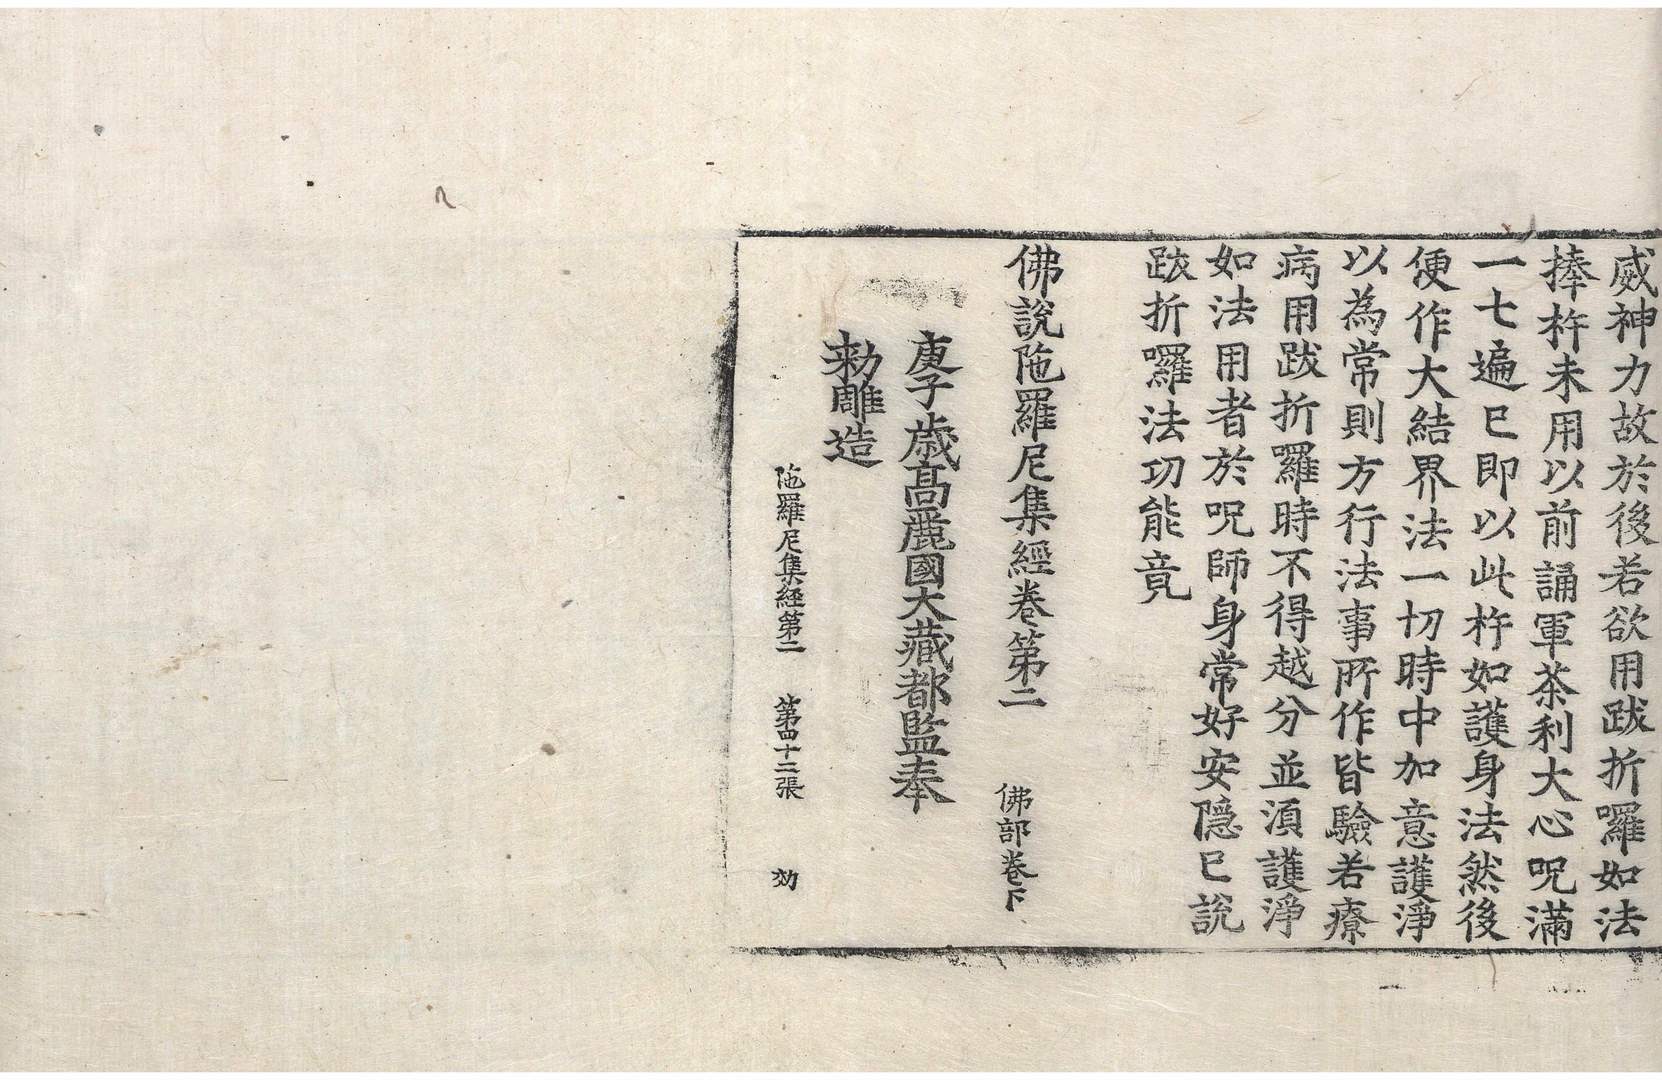 威神力故於後若欲用跋折囉如法
捧杵未用以前誦軍荼利大心呪滿
一七遍已即以此杵如護身法然後
便作大結界法一切時中加意護淨
以為常則方行法事所作皆驗若療
病用跋折囉時不得越分並湏護淨
如法用者於呪師身常好安隱已說
跋折囉法功能竟
佛說陁羅尼集經卷第二 佛部卷下
庚子歲高麗國大藏都監奉
勑雕造
陁羅尼集経第二 第四十二張 効